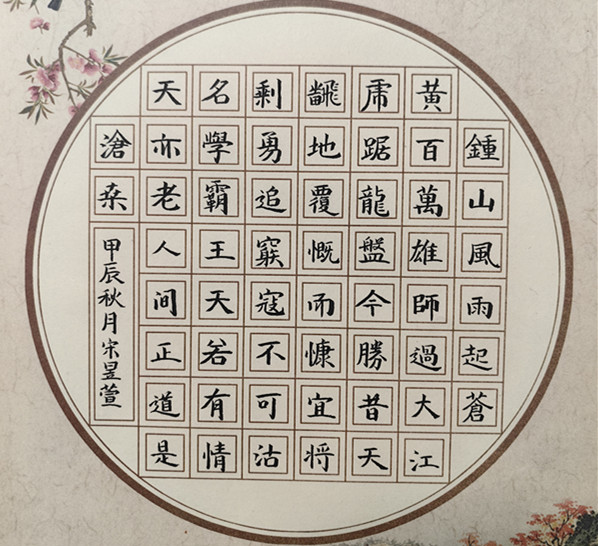 鍾山風雨起蒼
黄百萬雄師過大江
虎踞龍盤今勝昔天
飜地覆慨而慷宜将
剩勇追窮寇不可沽
名學霸王天若有情
天亦老人間正道是
滄桑
甲辰秋月宋昱萱